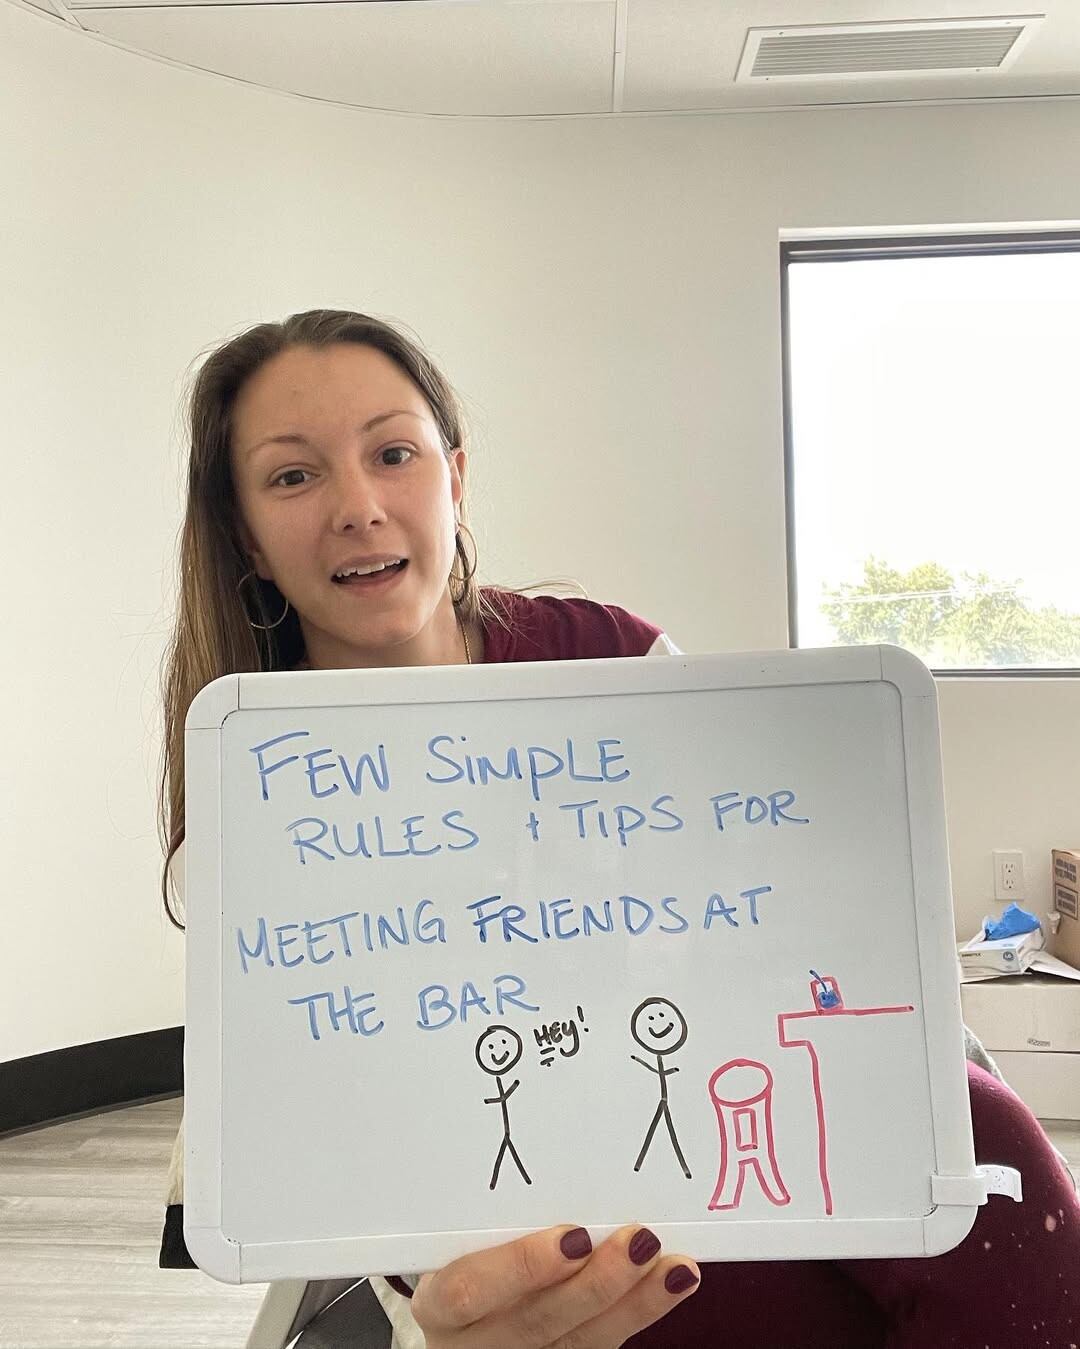 FEW SIMPLE
RULES + TIPS FOR
MEETING FRIENDS AT
THE BAR
HEY!